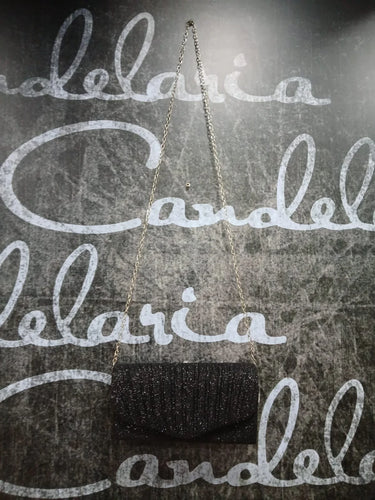 delaria
Candela
delaria
Candelaria